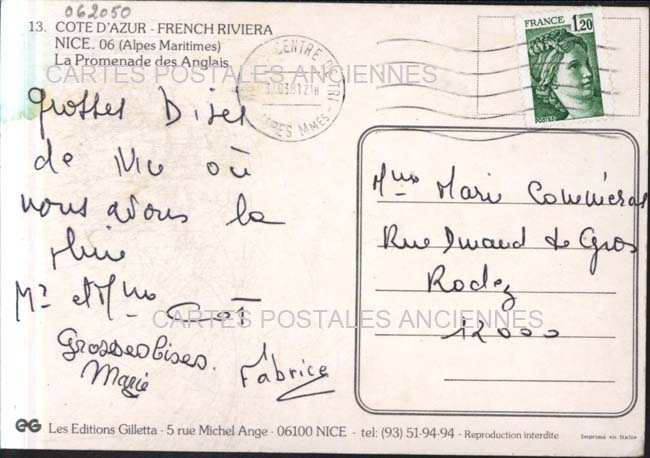 062050
13. COTE D'AZUR - FRENCH RIVIERA
NICE. 06 (Alpes Maritimes)
La Promenade des Anglais
FRANCE
1,20
CENTRE DE TRI
ALPES MMES
CARTES POSTALES ANCIENNES
Grosses Bises
de Nice où
nous avons la
pluie
Mr et Mme Cot
Grosses bises.
Marie
Fabrice
Mme Marie
Rue
Rodez
12000
CARTES POSTALES ANCIENNES
EG Les Editions Gilletta - 5 rue Michel Ange - 06100 NICE - tel: (93) 51-94-94 - Reproduction interdite
Imprimé en Italie